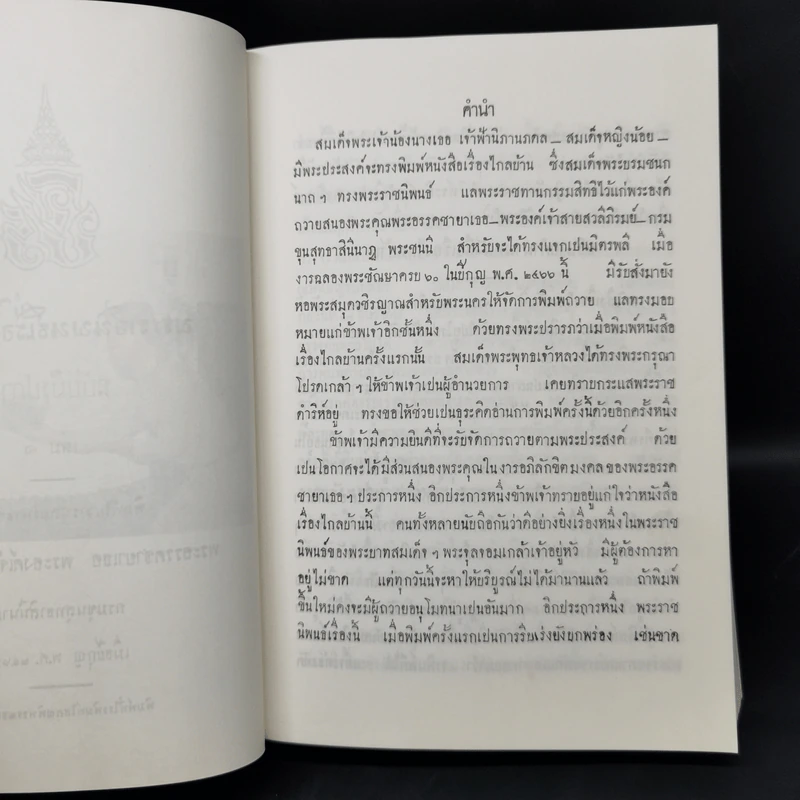 คำนำ
สมเด็จพระเจ้าน้องนางเธอ เจ้าฟ้านิภานภดล — สมเด็จหญิงน้อย —
มีพระประสงค์จะทรงพิมพ์หนังสือเรื่องไกลบ้าน ซึ่งสมเด็จพระบรมชนก
นาถ ฯ ทรงพระราชนิพนธ์ แลพระราชทานกรรมสิทธิไว้แก่พระองค์
ถวายสนองพระคุณพระอรรคชายาเธอ—พระองค์เจ้าสายสวลีภิรมย์—กรม
ขุนสุทธาสินีนาฏ พระชนนี สำหรับจะได้ทรงแจกเป็นมิตรพลี เมื่อ
งารฉลองพระชัณษาครบ ๖๐ ในปีกุญ พ.ศ. ๒๔๖๖ นี้ มีรับสั่งมายัง
หอพระสมุดวชิรญาณสำหรับพระนครให้จัดการพิมพ์ถวาย แลทรงมอบ
หมายแก่ข้าพเจ้าอีกชั้นหนึ่ง ด้วยทรงพระปรารภว่าเมื่อพิมพ์หนังสือ
เรื่องไกลบ้านครั้งแรกนั้น สมเด็จพระพุทธเจ้าหลวงได้ทรงพระกรุณา
โปรดเกล้า ฯ ให้ข้าพเจ้าเป็นผู้อำนวยการ เคยทราบกระแสพระราช
ดำริห์อยู่ ทรงขอให้ช่วยเป็นธุระคิดอ่านการพิมพ์ครั้งนี้ด้วยอีกครั้งหนึ่ง
ข้าพเจ้ามีความยินดีที่จะรับจัดการถวายตามพระประสงค์ ด้วย
เป็นโอกาศจะได้มีส่วนสนองพระคุณในงารอภิลักขิตมงคล ของพระอรรค
ชายาเธอ ฯ ประการหนึ่ง อีกประการหนึ่งข้าพเจ้าทราบอยู่แก่ใจว่าหนังสือ
เรื่องไกลบ้านนี้ คนทั้งหลายนับถือกันว่าดีอย่างยิ่งเรื่องหนึ่งในพระราช
นิพนธ์ของพระบาทสมเด็จ ฯ พระจุลจอมเกล้าเจ้าอยู่หัว มีผู้ต้องการหา
อยู่ไม่ขาด แต่ทุกวันนี้จะหาให้บริบูรณ์ไม่ได้มานานแล้ว ถ้าพิมพ์
ขึ้นใหม่คงจะมีผู้ถวายอนุโมทนาเป็นอันมาก อีกประการหนึ่ง พระราช
นิพนธ์เรื่องนี้ เมื่อพิมพ์ครั้งแรกเป็นการรีบเร่งยังบกพร่อง เช่นขาด